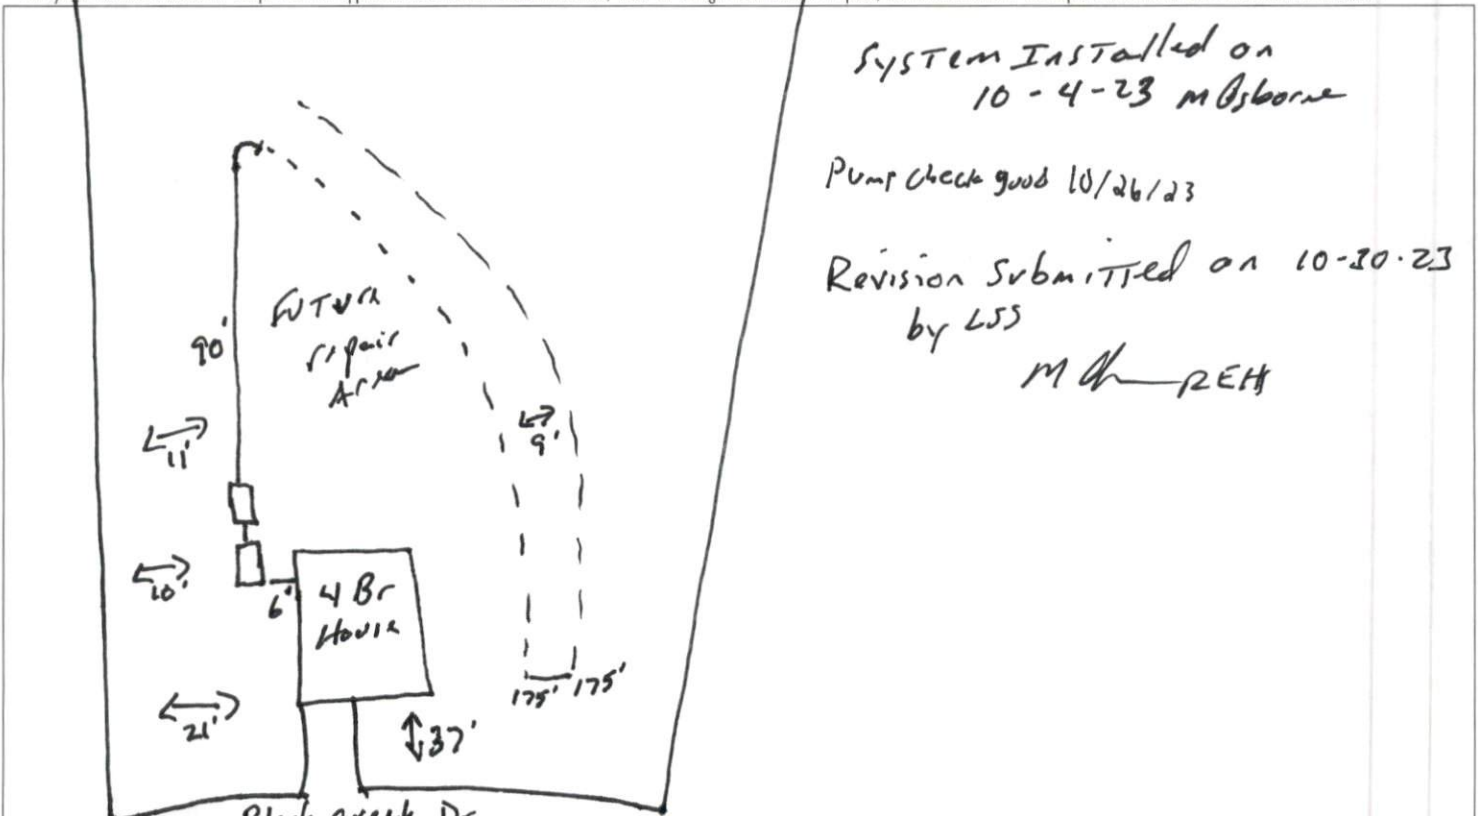 System Installed on
10-4-23 M Osborne
Pump check good 10/26/23
Revision Submitted on 10-30-23
by LSS
M REH
Future
repair
Area
90'
11'
9'
10'
6'
4 Br
House
175' 175'
21'
37'
Dr